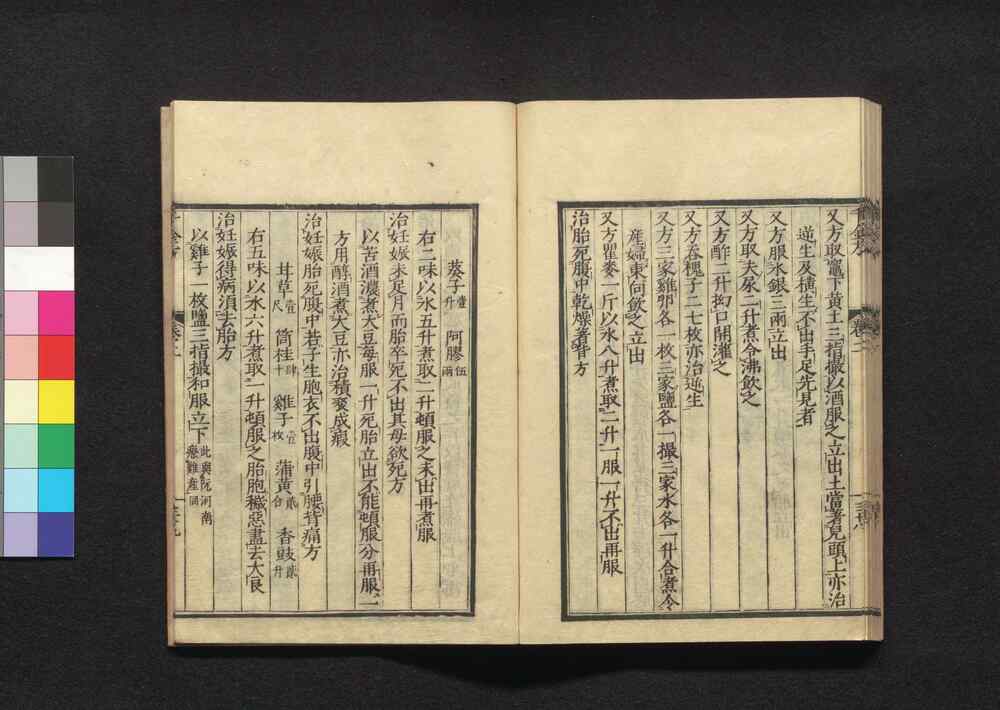 又方取竈下黄土三指撮以酒服之立出土當著兒頭上亦治
逆生及橫生不出手足先見者
又方服水銀三兩立出
又方取夫尿二升煮令沸飲之
又方吞槐子二七枚亦治逆生
又方酢二升拗口開灌之
又方三家雞卵各一枚三家鹽各一撮三家水各一升合煮令
産婦東向飲之立出
又方瞿麥一斤以水八升煮取二升一服一升不出再服
治胎死腹中乾燥著背方
葵子壹升 阿膠伍兩
右二味以水五升煮取二升頓服之未出再煮服
治妊娠未足月而胎卒死不出其母欲死方
以苦酒濃煮大豆每服一升死胎立出不能頓服分再服一
方用醇酒煮大豆亦治積聚成瘕
治妊娠胎死腹中若子生胞衣不出腹中引腰背痛方
甘草壹尺 筒桂肆寸 雞子壹枚 蒲黄貳合 香豉貳升
右五味以水六升煮取一升頓服之胎胞穢惡盡去大良
治妊娠得病須去胎方
以雞子一枚鹽三指撮和服立下此與阮河南療難産同
千金方
卷二
千金方
卷二